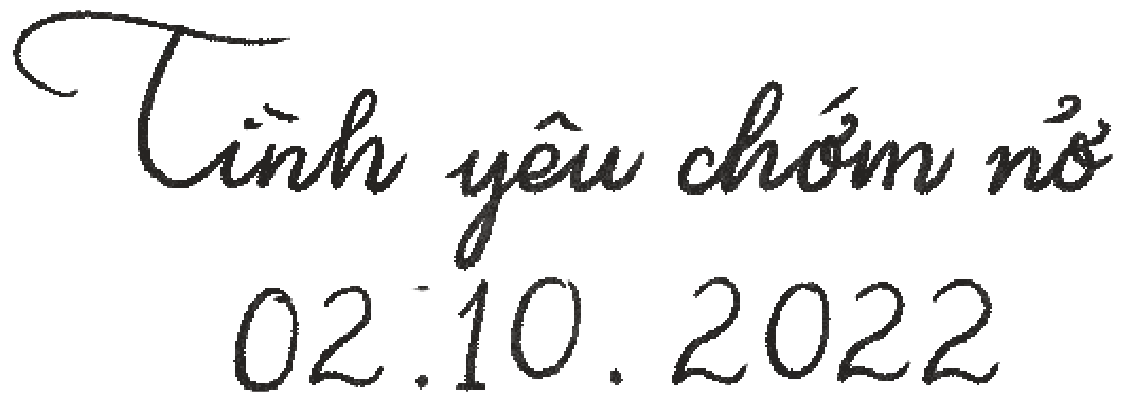 Tình yêu chớm nở
02.10.2022